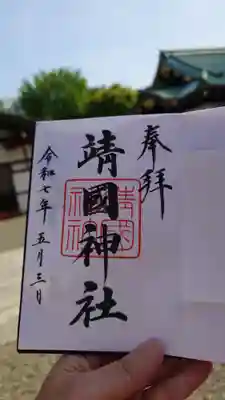 奉拝
靖國神社
令和七年 五月三日
靖國
神社